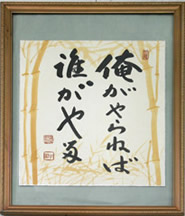 俺がやらねば
誰がやる